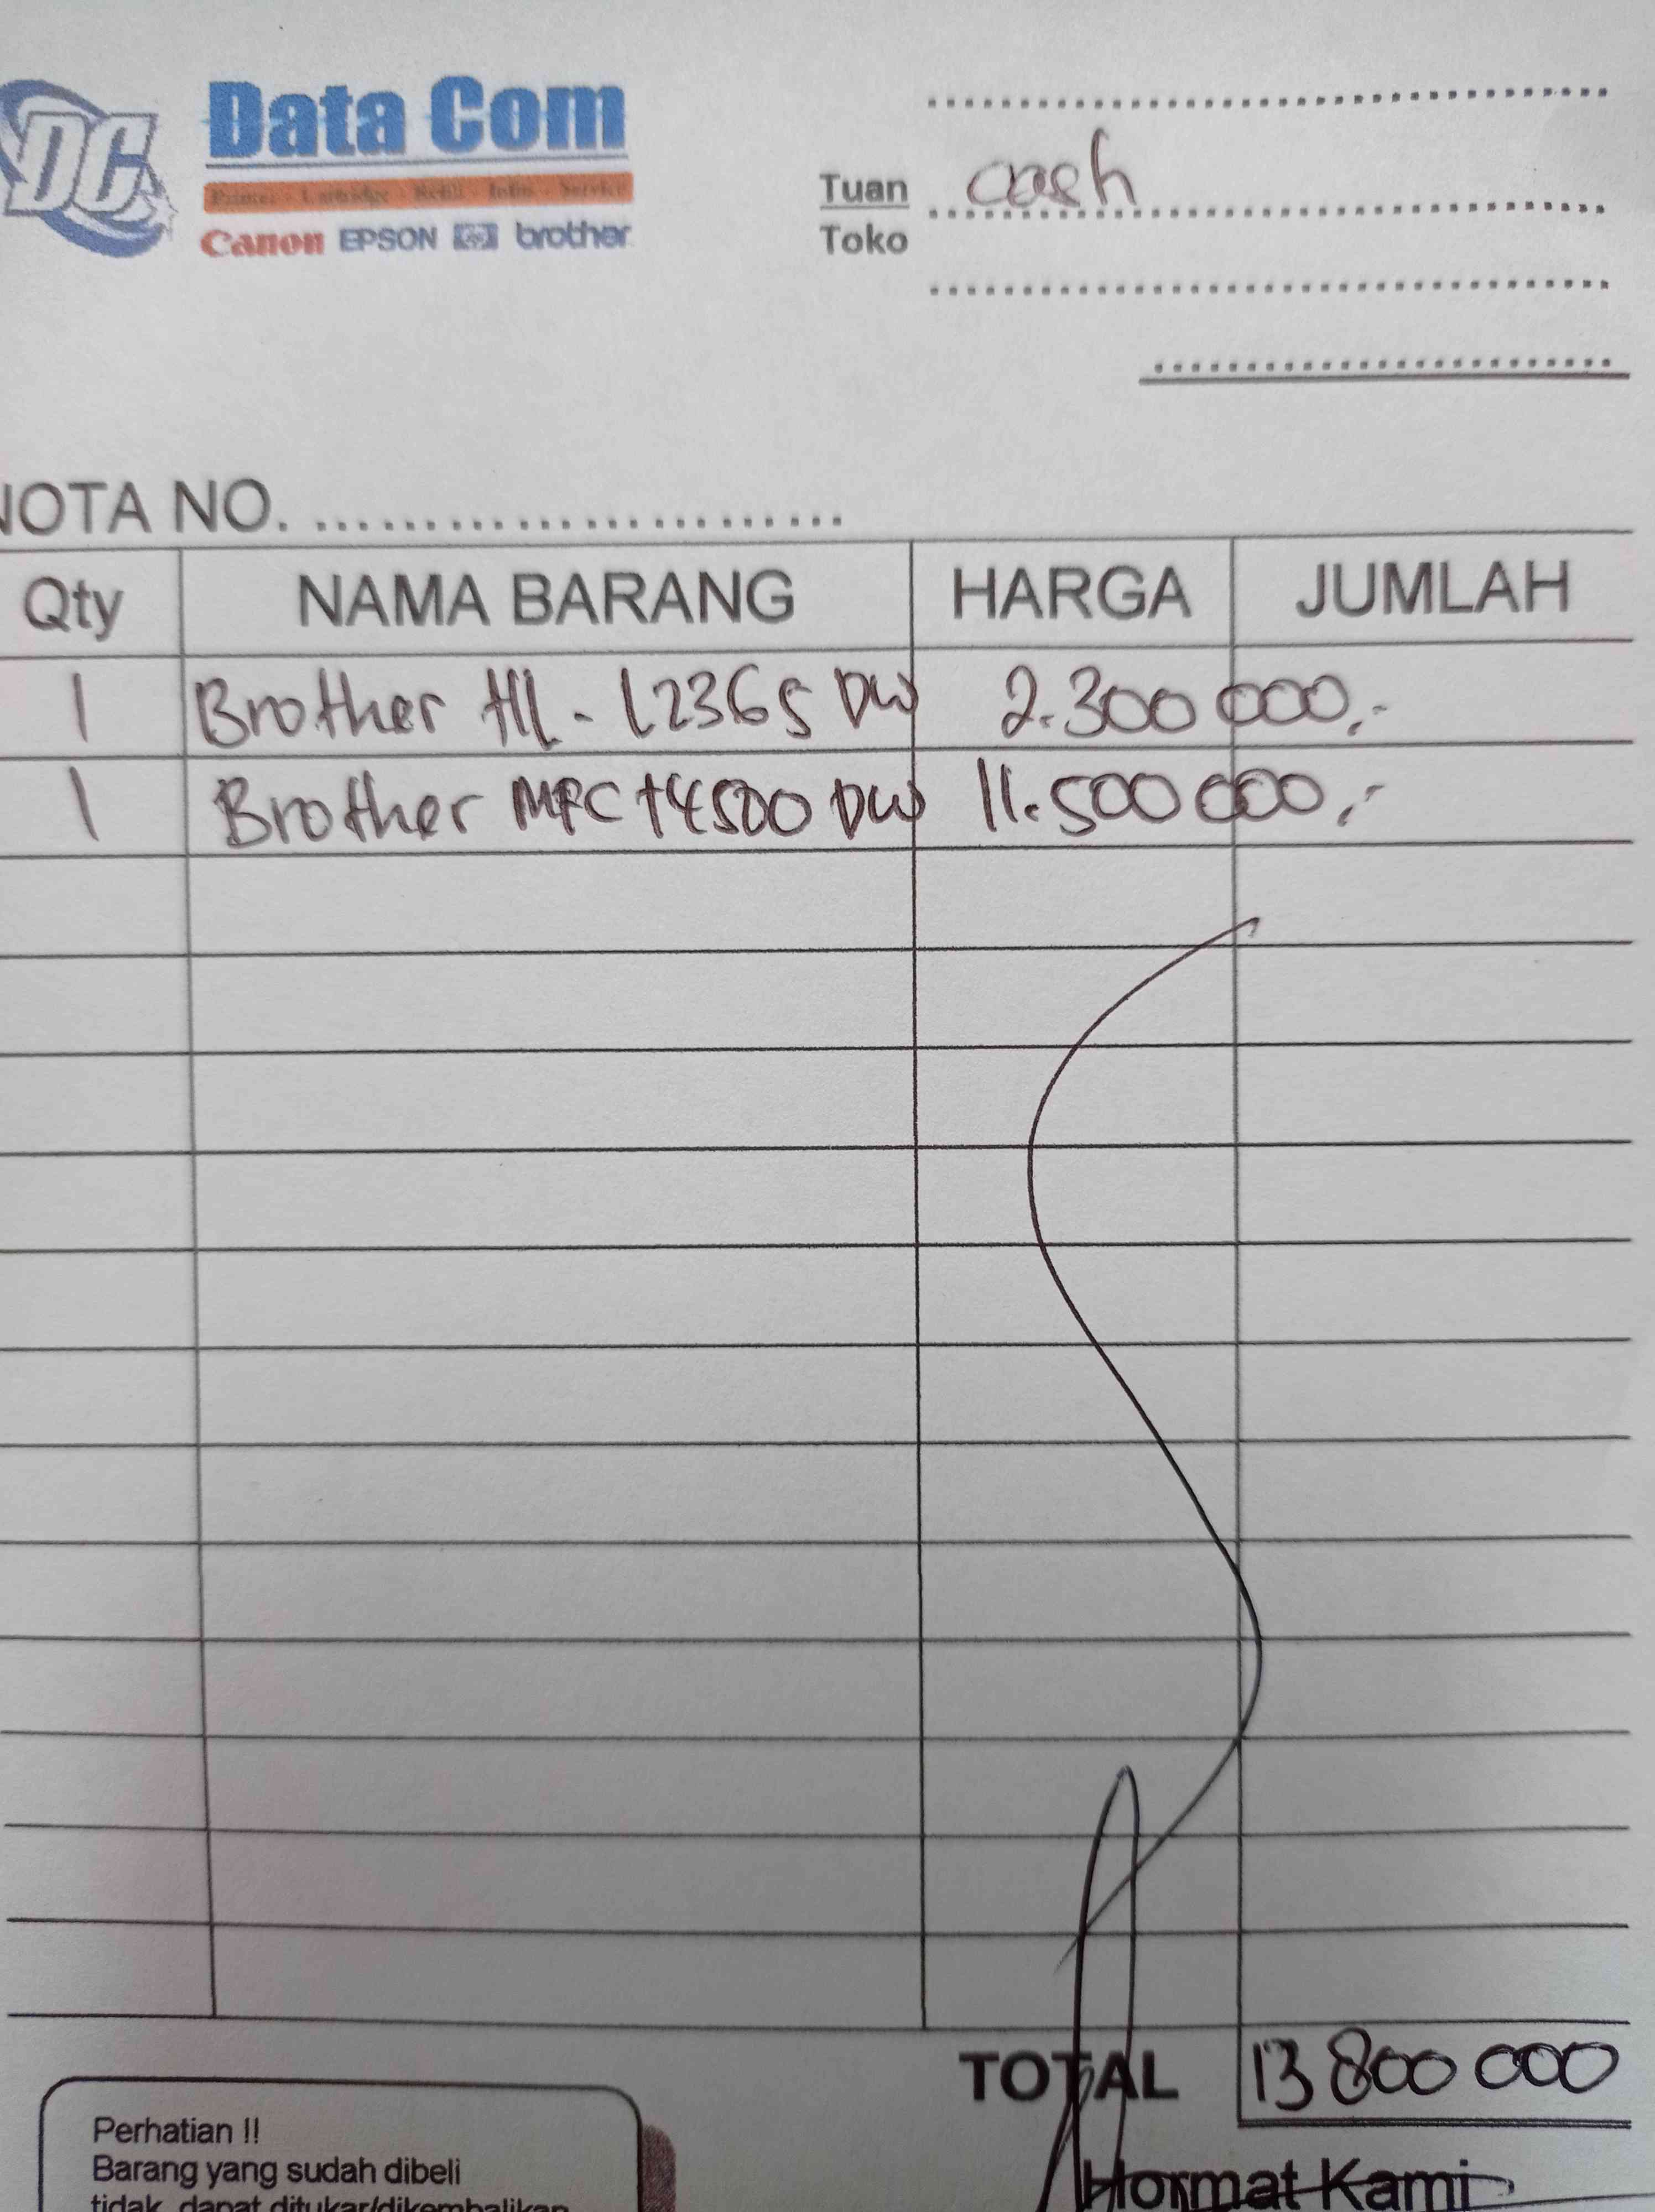 DC Data Com
Printer - Cartridge - Refill - Infus - Service
Canon EPSON hp brother
Tuan cash
Toko
NOTA NO. ........................
Qty NAMA BARANG HARGA JUMLAH
1 Brother HL - L2365 DW 2.300 000,-
1 Brother MFC T4500 DW 11.500 000,-
TOTAL 13 800 000
Perhatian !!
Barang yang sudah dibeli
tidak dapat ditukar/dikembalikan
Hormat Kami